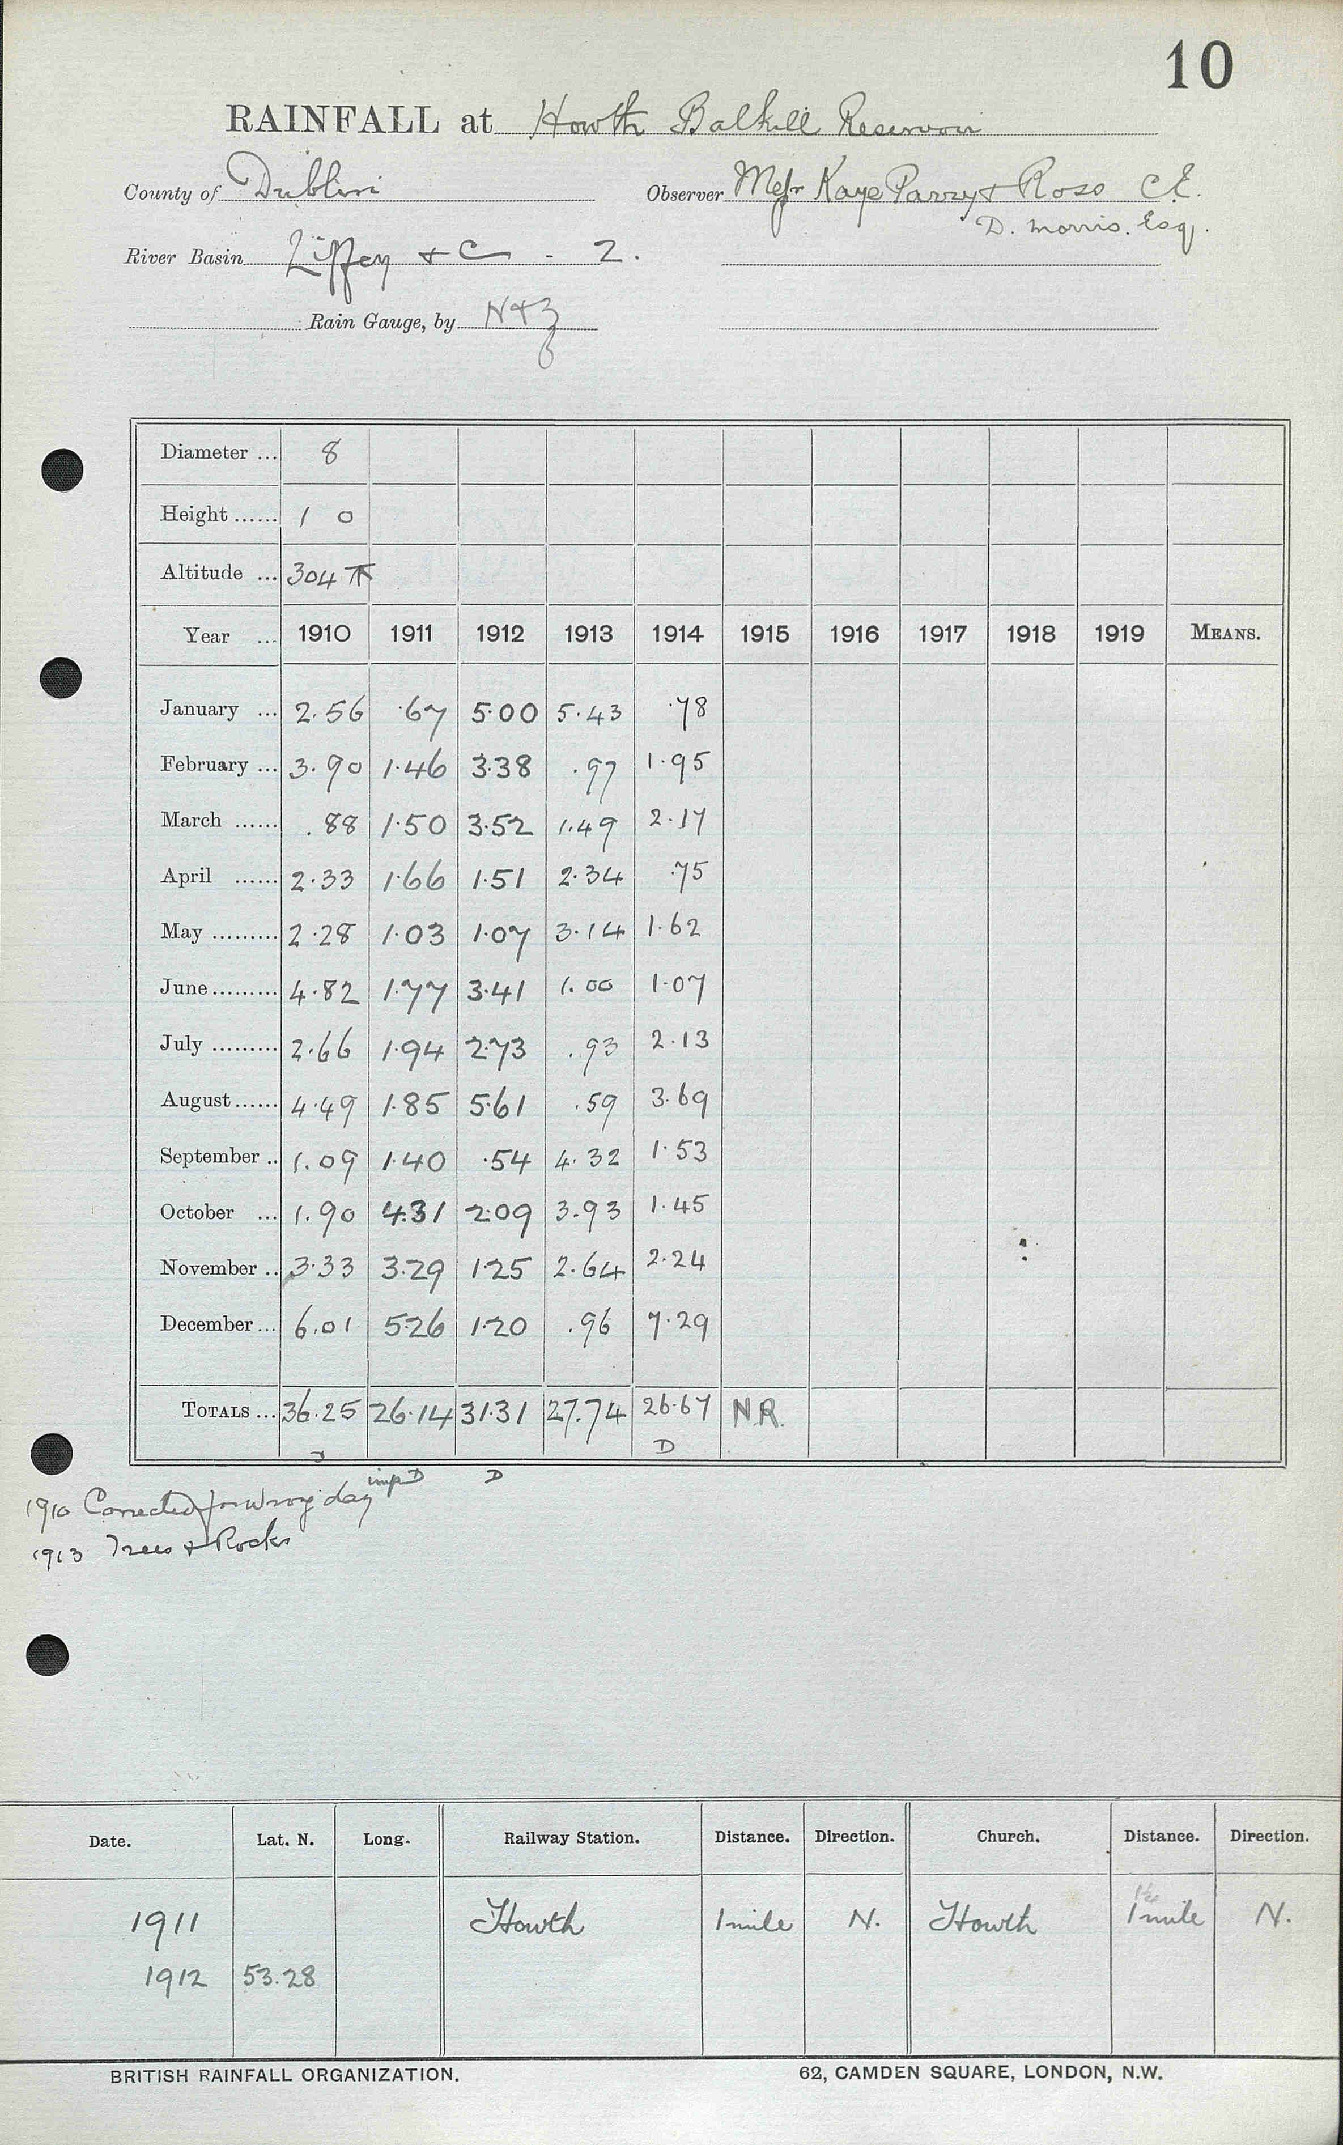 10
RAINFALL at Howth Balkill Reservoir
County of Dublin Observer Messrs Kaye Parry & Ross C.E.
D. Morris. Esq.
River Basin Liffey &c - 2.
Rain Gauge, by N & Z
Diameter ... 8
Height ...... 1 0
Altitude ... 304
Year ... 1910 1911 1912 1913 1914 1915 1916 1917 1918 1919 MEANS.
January ... 2.56 .67 5.00 5.43 .78
February ... 3.90 1.46 3.38 .97 1.95
March ...... .88 1.50 3.52 1.49 2.17
April ...... 2.33 1.66 1.51 2.34 .75
May ......... 2.28 1.03 1.07 3.14 1.62
June ......... 4.82 1.77 3.41 1.00 1.07
July ......... 2.66 1.94 2.73 .93 2.13
August ...... 4.49 1.85 5.61 .59 3.69
September .. 1.09 1.40 .54 4.32 1.53
October ... 1.90 4.31 2.09 3.93 1.45
November .. 3.33 3.29 1.25 2.64 2.24
December ... 6.01 5.26 1.20 .96 7.29
TOTALS ... 36.25 26.14 31.31 27.74 26.67 N.R.
D
imp D D
1910 Corrected for wrong day
1913 Trees & Rocks
Date. Lat. N. Long. Railway Station. Distance. Direction. Church. Distance. Direction.
1911 Howth 1 mile N. Howth 1 mile N.
1912 53.28
BRITISH RAINFALL ORGANIZATION. 62, CAMDEN SQUARE, LONDON, N.W.